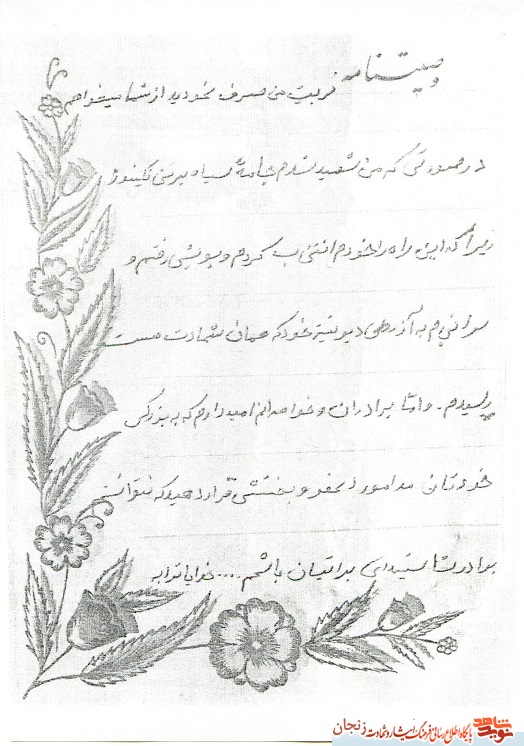 وصیتنامه
تربیت من صرف نمودید از شما میخواهم
در صورتی که من شهید شدم جامهٔ سیاه برتن نکنید
زیرا که این راه را خودم انتخاب کردم و پویش رفتم و
سرانجام به آرزوی دیرینه خود که همان شهادت هست
رسیدم. و امّا برادران و خواهرانم امیدوارم که به بزرگی
خودتان مرا مورد عفو و بخشش قرار دهید که نتوانستم
برادر شایسته‌ای برایتان باشم .... خدایا ترا به
نوید شاهد
پایگاه اطلاع رسانی فرهنگ ایثار و شهادت زنجان